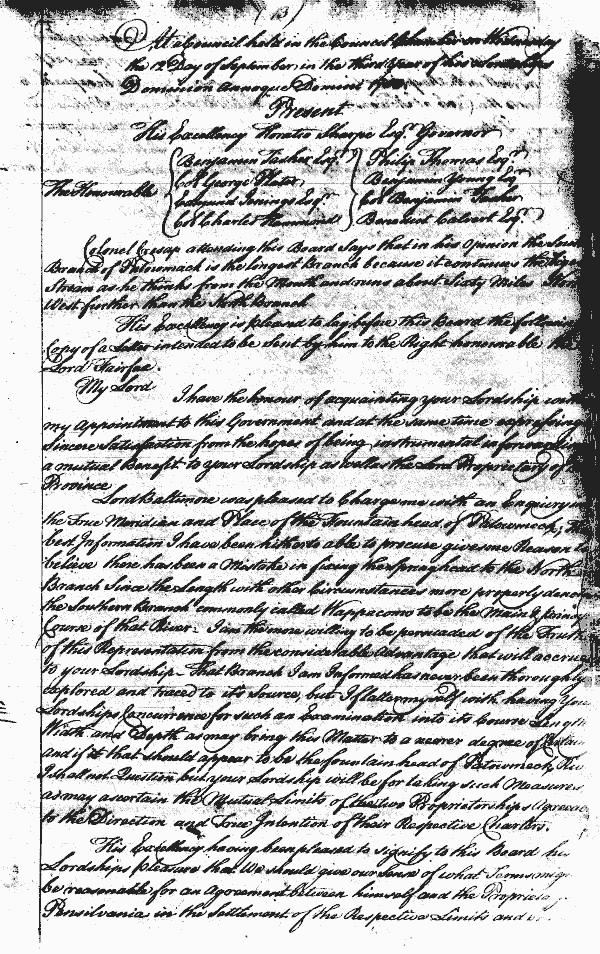 (13)
At a Council held in the Council Chamber on Wednesday
the 12 Day of September in the third Year of his Lordships
Dominion Annoque Domini
Present
His Excellency Horatio Sharpe Esqr. Governor
Benjamin Tasker Esqr. Philip Thomas Esqr.
Col George Plater Benjamin Young Esqr.
The Honourable Edmund Jenings Esqr. Col Benjamin Tasker
Col Charles Hammond Benedict Calvert Esqr.
Colonel Cresap attending this Board Says that in his Opinion the South
Branch of Potowmach is the longest Branch because it continues the
Stream as he thinks from the Mouth and runs about Sixty Miles
West further than the North Branch
His Excellency is pleased to lay before this Board the following
Copy of a Letter intended to be sent by him to the Right honourable the
Lord Fairfax.
My Lord
I have the honour of acquainting your Lordship with
my Appointment to this Government and at the same time expressing
Sincere Satisfaction from the hopes of being instrumental in
a mutual Benefit to your Lordship as well as the Lord Proprietary of
Province
Lord Baltimore was pleased to Charge me with an Enquiry
the True Meridian and Place of the Fountain head of Potowmeck, the
best Information I have been hitherto able to procure gives me Reason to
believe there has been a Mistake in fixing the spring head to the North
Branch Since the Length with other Circumstances more properly
the Southern Branch commonly called Wappocomo to be the Main &
Course of that River - I am the more willing to be persuaded of the Truth
of this Representation from the considerable Advantage that will accrue
to your Lordship - That Branch I am Informed has never been thoroughly
explored and traced to its Source, but I flatter myself with having your
Lordships Concurrence for such an Examination into its Course Length
Width and Depth as may bring this Matter to a nearer degree of
and if it that should appear to be the fountain head of Potowmeck
I shall not Question but your Lordship will be for taking such Measures
as may ascertain the Mutual Limits of the two Proprietorships
to the Direction and True Intention of their Respective Charters.
His Excellency having been pleased to signify to this Board his
Lordships pleasure that We should give our sense of what Terms
be reasonable for an Agreement between himself and the
Pensilvania in the Settlement of the Respective Limits and